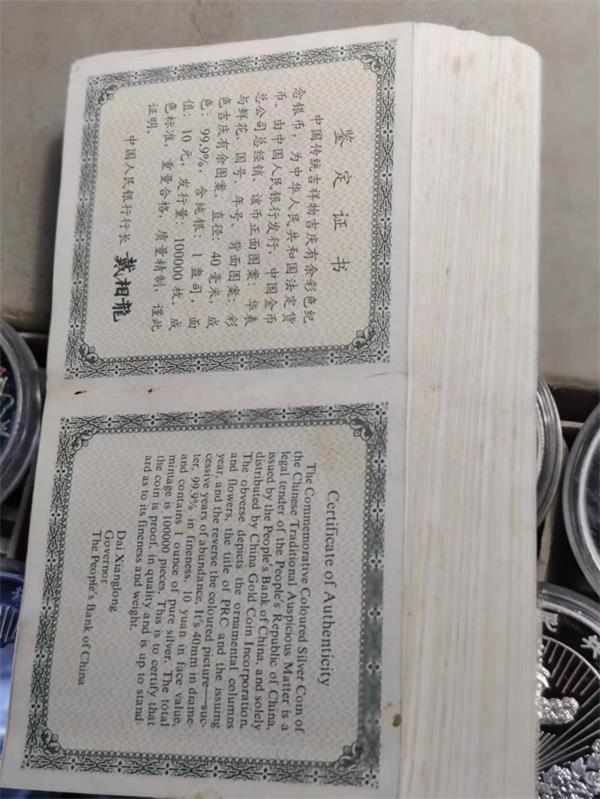 鉴定证书
中国传统吉祥物吉庆有余彩色纪
念银币,为中华人民共和国法定货
币。由中国人民银行发行,中国金币
总公司总经销。该币正面图案:华表
与鲜花、国号、年号,背面图案:彩
色吉庆有余图案。直径:40毫米,成
色:99.9%,含纯银:1盎司,面
值:10元,发行量:100000枚,成
色标准,重量合格,质量精制,谨此
证明。
中国人民银行行长 戴相龍
Certificate of Authenticity
The Commemorative Coloured Silver Coin of
the Chinese Traditional Auspicious Matter is a
legal tender of the People's Republic of China,
issued by the People's Bank of China, and solely
distributed by China Gold Coin Incorporation.
The obverse depicts the ornamental columns
and flowers, the title of PRC and the issuing
year, and the reverse the coloured picture—suc-
cessive years of abundance. It's 40mm in diame-
ter, 99.9% in fineness, 10 yuan in face value,
and contains 1 ounce of pure silver. The total
mintage is 100000 pieces. This is to certify that
the coin is proof, in quality and is up to stand-
ard as to its fineness and weight.
Dai Xianglong
Governor
The People's Bank of China